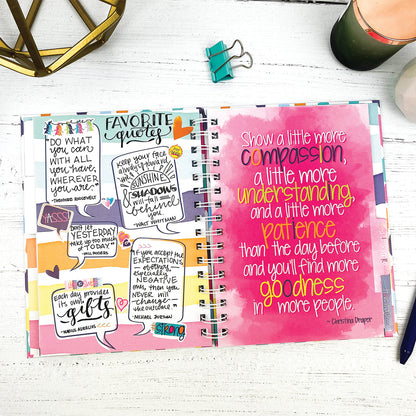 FAVORITE
quotes
"DO WHAT
you CAN
WITH ALL
you HAVE,
WHEREVER
you ARE."
-THEODORE ROOSEVELT
Keep your face
always toward
the
SUNSHINE
and
SHADOWS
will fall
behind
you.
WALT WHITMAN
YASSS!
Don't let
YESTERDAY
take up too much
of TODAY."
-WILL ROGERS
If you accept the
EXPECTATIONS
of others,
especially
NEGATIVE
ones, then you
NEVER WILL
change
the outcome."
-MICHAEL JORDAN
Each day provides
its own
gifts
-MARCUS AURELIUS
STRONG
Show a little more
compassion,
a little more
understanding,
and a little more
patience
than the day before
and you'll find more
goodness
in more people.
~ Christina Draper